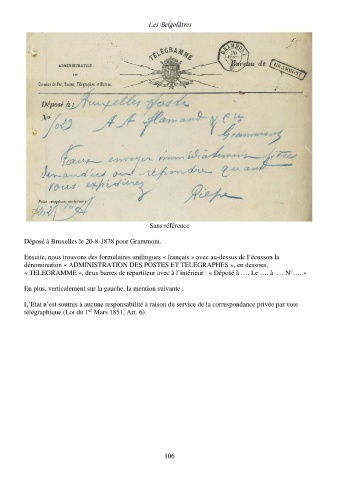 Les Belgolâtres
TÉLÉGRAMME
GRAMMONT
ADMINISTRATION
DES
Chemins de Fer, Postes, Télégraphes et Marine.
Bureau de GRAMMONT
Déposé à : Bruxelles
No
A A flamand & Cie
Grammont
envoyer immédiatement
demandées ou répondre quand
vous expédierez
Sans référence
Déposé à Bruxelles le 20-8-1878 pour Grammont.
Ensuite, nous trouvons des formulaires unilingues « français » avec au-dessus de l'écusson la
dénomination « ADMINISTRATION DES POSTES ET TELEGRAPHES », en dessous,
« TELEGRAMME », deux barres de répartiteur avec à l'intérieur : « Déposé à …. Le …. à … N°…. »
En plus, verticalement sur la gauche, la mention suivante :
L'Etat n'est soumis à aucune responsabilité à raison du service de la correspondance privée par voie
télégraphique (Loi du 1er Mars 1851, Art. 6).
106